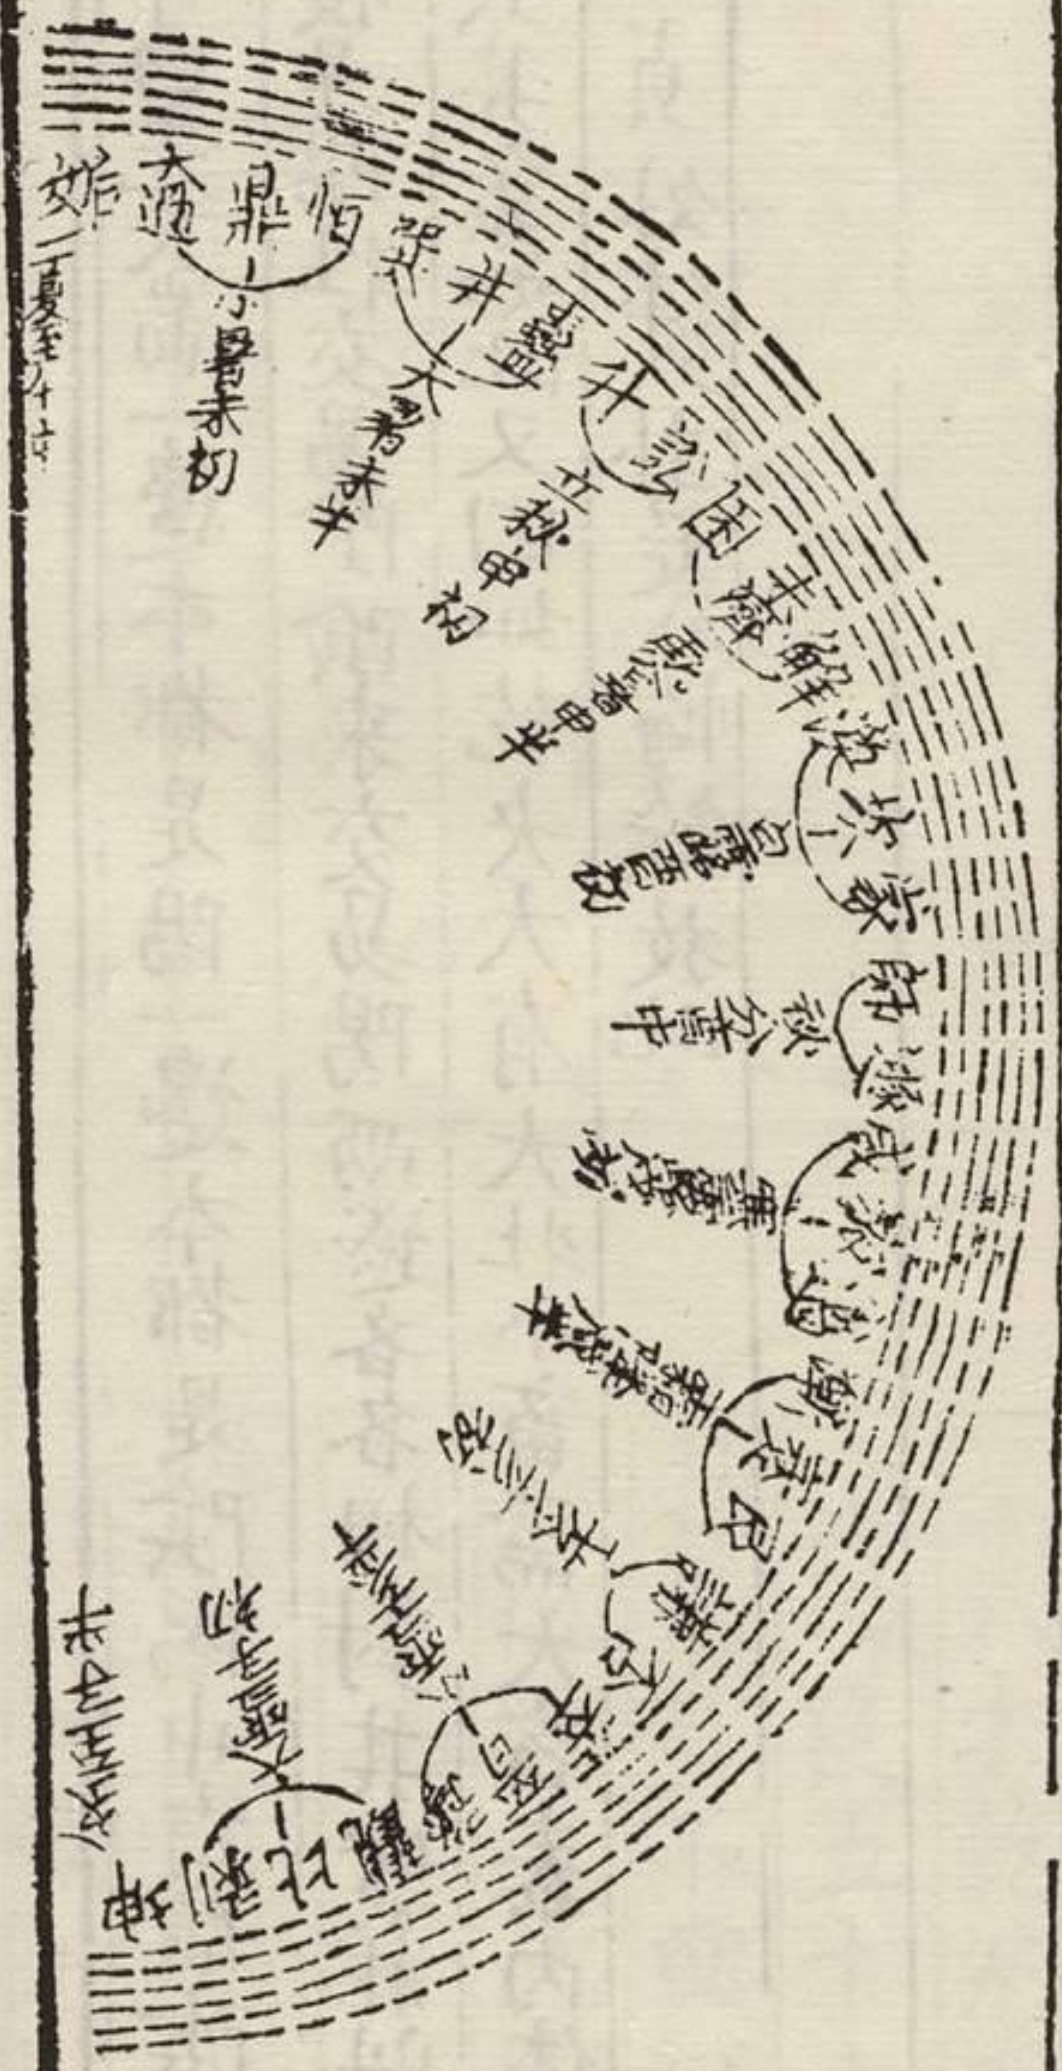 姤
夏至午
大過
鼎
恒
小暑未初
巽
井
蠱
大暑未半
升
訟
立秋申初
困
未濟
解
處暑申半
渙
坎
蒙
白露酉初
師
遯
秋分酉中
咸
旅
小過
寒露戌初
漸
蹇
艮
霜降戌半
謙
否
立冬亥初
萃
晉
豫
小雪亥半
觀
比
剝
大雪子初
坤
冬至子半